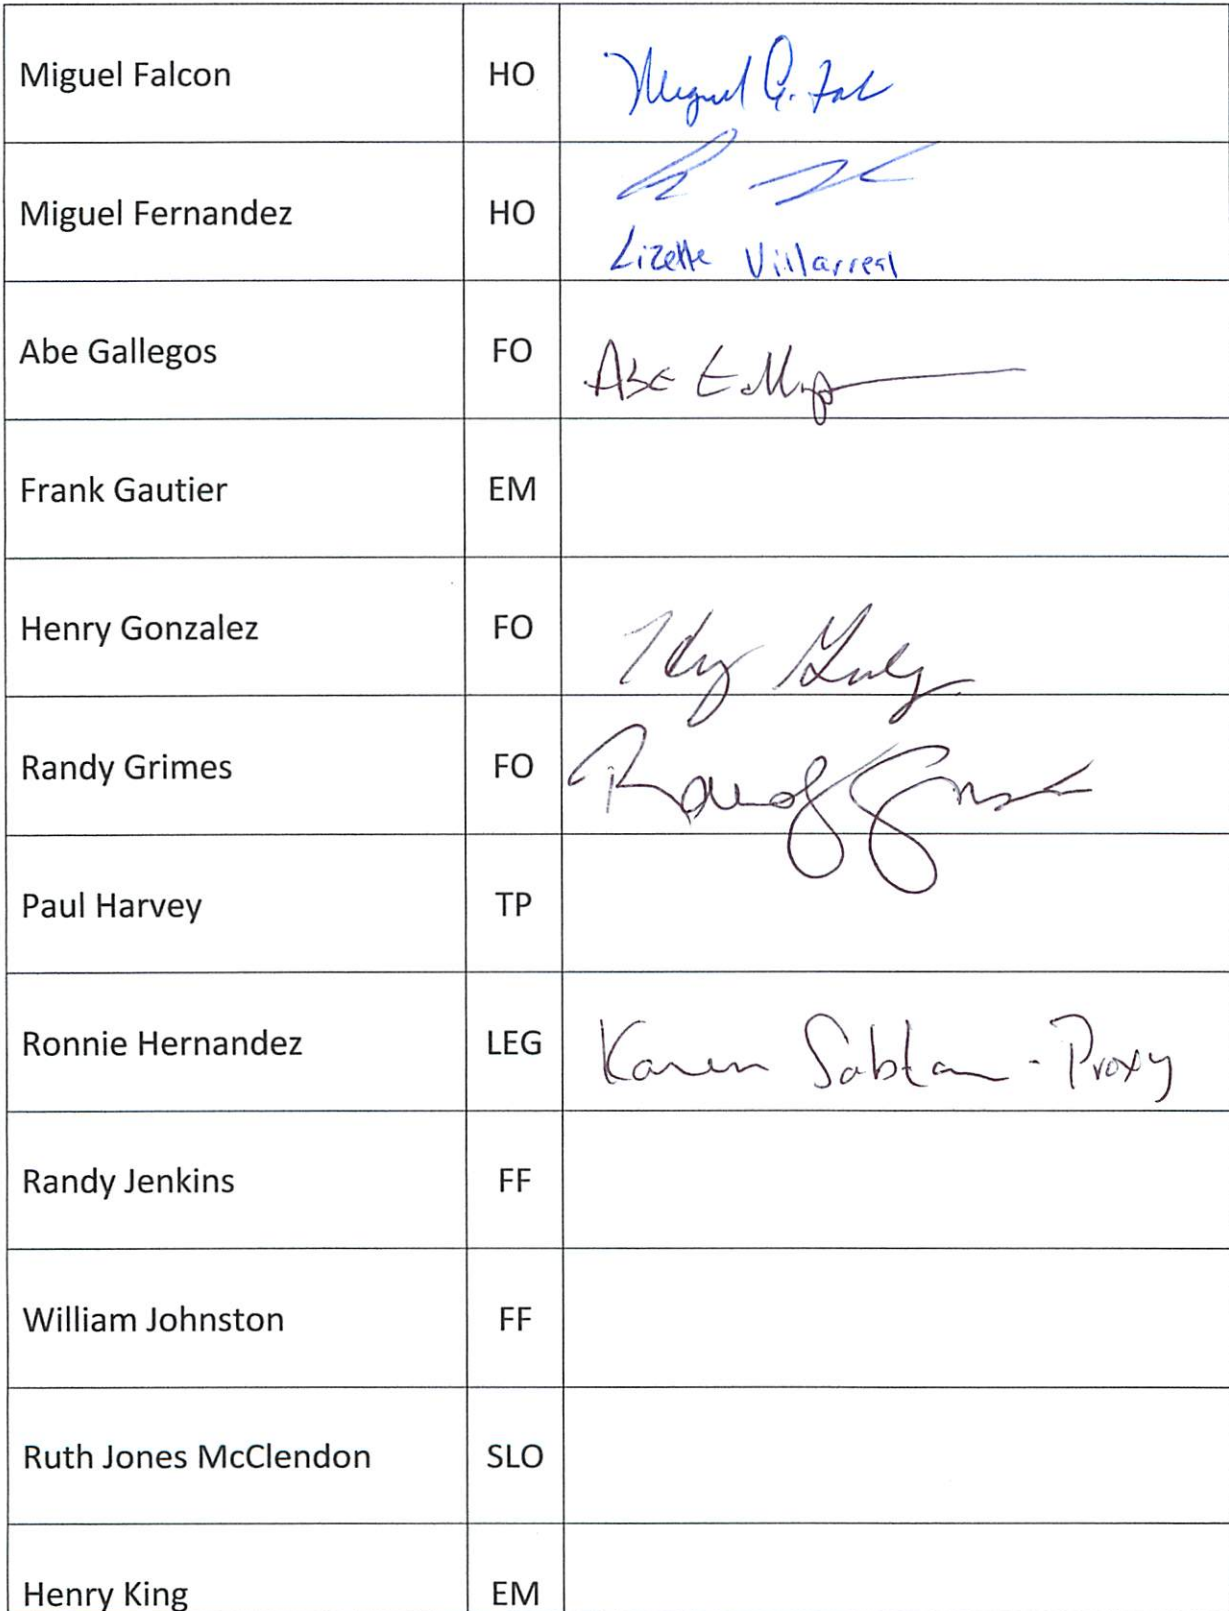 Miguel Falcon HO Miguel G. Fal
Miguel Fernandez HO
Lizette Villarreal
Abe Gallegos FO Abe
Frank Gautier EM
Henry Gonzalez FO
Randy Grimes FO Randy
Paul Harvey TP
Ronnie Hernandez LEG Karen Sablan - Proxy
Randy Jenkins FF
William Johnston FF
Ruth Jones McClendon SLO
Henry King EM